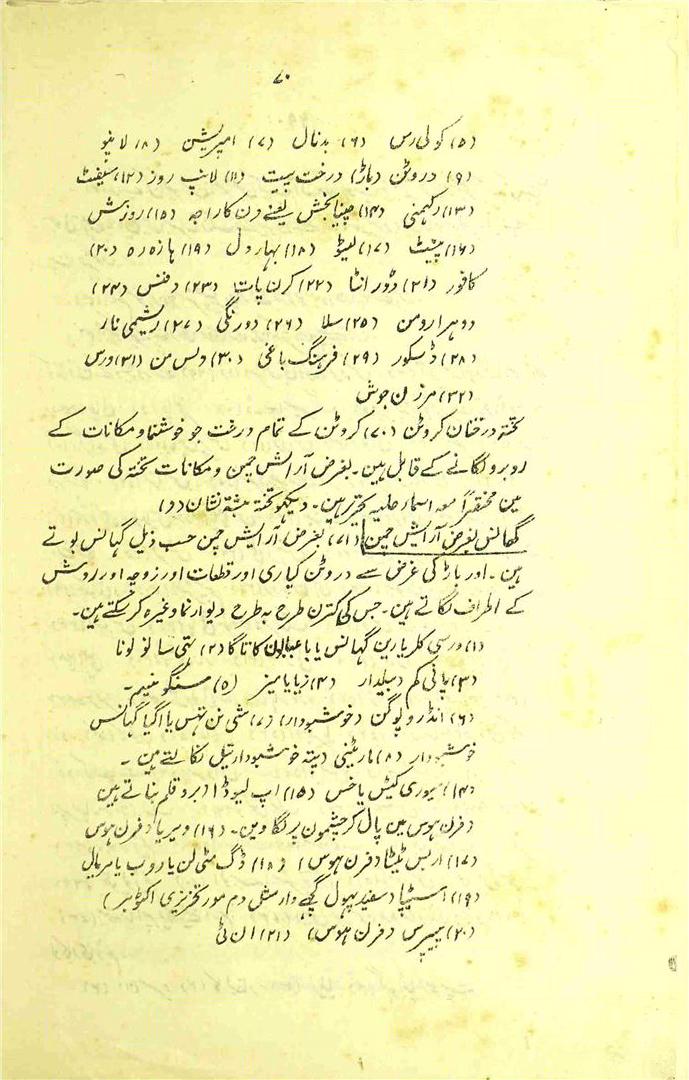 ۷۰
(۵) کولی رس (۶) بدنال (۷) امپریشن (۸) لانیو
(۹) دروٹن (باڑ) درخت پیت (۱۱) لانپ روز (۱۲) سیفنٹ
(۱۳) رکہمنی (۱۴) چنپا بخش یعنے دن کا راجہ (۱۵) روزنش
(۱۶) پنیٹ (۱۷) لیٹو (۱۸) بہار دل (۱۹) ہازہ رہ (۲۰)
کافور (۲۱) ڈورانٹا (۲۲) کرلنا پات (۲۳) دفنس (۲۴)
دوہرا رومن (۲۵) سلا (۲۶) دورنگی (۲۷) ریشمی نار
(۲۸) ڈسکور (۲۹) فرہنگ باغی (۳۰) ولس من (۳۱) ورس
(۳۲) مرزن جوش
تختہ درختان کروٹن (۷۰) کروٹن کے تمام درخت جو خوشنما و مکانات کے
روبرو لگانے کے قابل ہین۔ بغرض آرایش چمن و مکانات تختہ کی صورت
مین مختصراً معہ اسمار حلیہ تحریر ہین۔ دیکہو تختہ مثبتہ نشان (د)
گھانس بغرض آرایش چمن (۷۱) بغرض آرایش چمن حسب ذیل گہانس بوتے
ہین۔ اور باڑ کی غرض سے دروٹن کیاری اور قطعات اور زوجہ اور روش
کے اطراف لگاتے ہین۔ جس کی کترن طرح بہ طرح دیوار نما وغیرہ کر سکتے ہین۔
(۱) ورسی کلر یا رین گہانس یا باعبالون کا تاگا (۲) ہتی سالو لونا
(۳) پانی کم (بیلدار (۴) زیبا یا میز (۵) مسنگو منیم۔
(۶) انڈرو پوگن (خوشبودار) (۷) شی نن تہس یا اگیا گہانس
خوشبودار (۸) مارٹینی (پتہ خوشبودار تیل نکالتے ہین۔
(۱۴) میوری کیٹس یا خس (۱۵) اپ لیوڈا (برو قلم بناتے ہین
(فرن ہوس مین پال کر چشمون پر لگا وین۔ (۱۶) ویریا (فرن ہوس
(۱۷) ارلس ٹیٹا (فرن ہوس) (۱۸) ڈگ مٹی لن یا روب یا ہریالی
(۱۹) اسٹیپا (سفید پہول گچہے دار مثل دم مور تخمریزی اکٹوبر)
(۲۰) پیپرس (فرن ہوس) (۲۱) ان ٹی